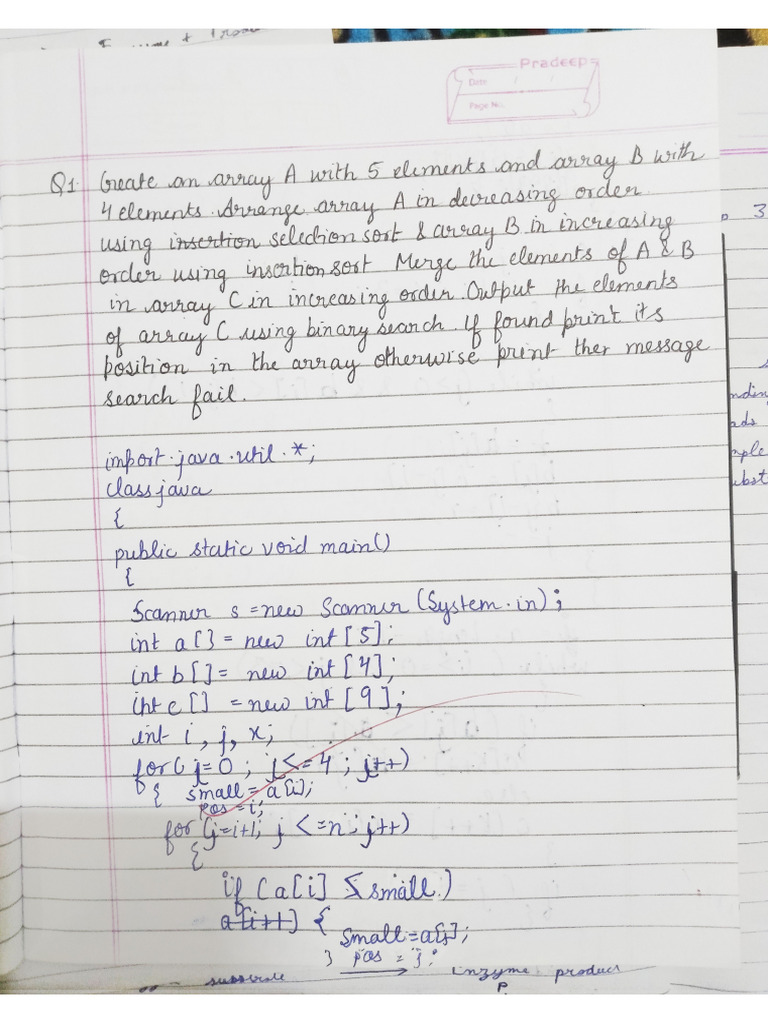 Pradeep
Date / /
Page No.
Q1. Create an array A with 5 elements and array B with
4 elements. Arrange array A in decreasing order
using insertion selection sort & array B in increasing
order using insertion sort Merge the elements of A & B
in array C in increasing order. Output the elements
of array C using binary search. If found print its
position in the array otherwise print ther message
search fail.
import.java.util.*;
class java
{
public static void main()
{
Scanner s = new Scanner (System.in);
int a[] = new int [5];
int b[] = new int [4];
int c[] = new int [9];
int i, j, x;
for( j=0 ; j<=4 ; j++)
{ small = a[i];
pos = i;
for (j=i+1; j <=n; j++)
{
if (a[i] < small)
a[i++] {
small = a[j];
} pos = j;
substrate → enzyme product
P
3